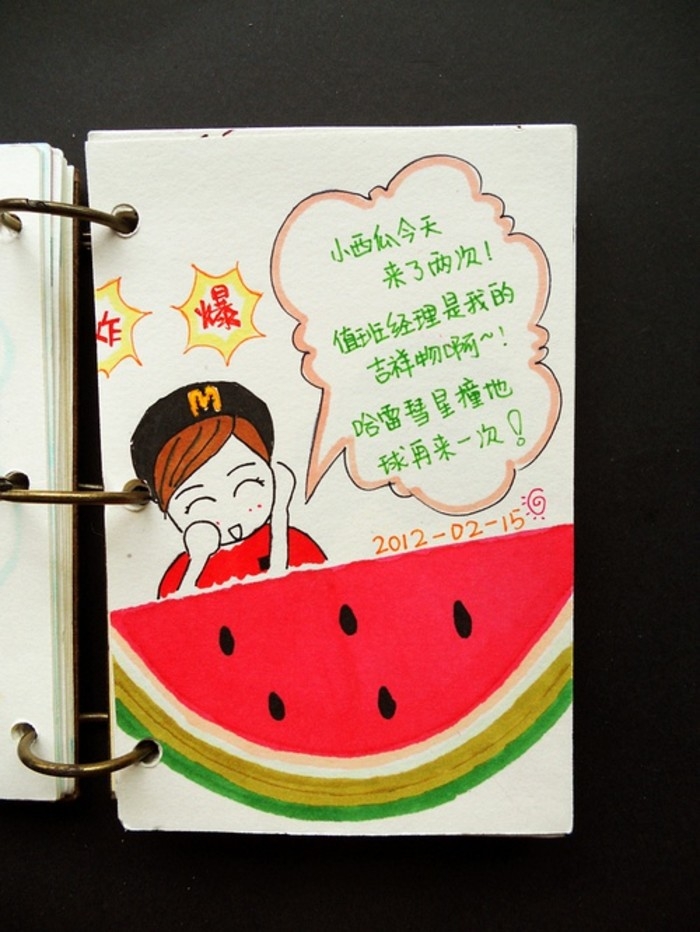 炸
爆
小西瓜今天
来了两次！
值班经理是我的
吉祥物啊~！
哈雷彗星撞地
球再来一次！
M
2012-02-15